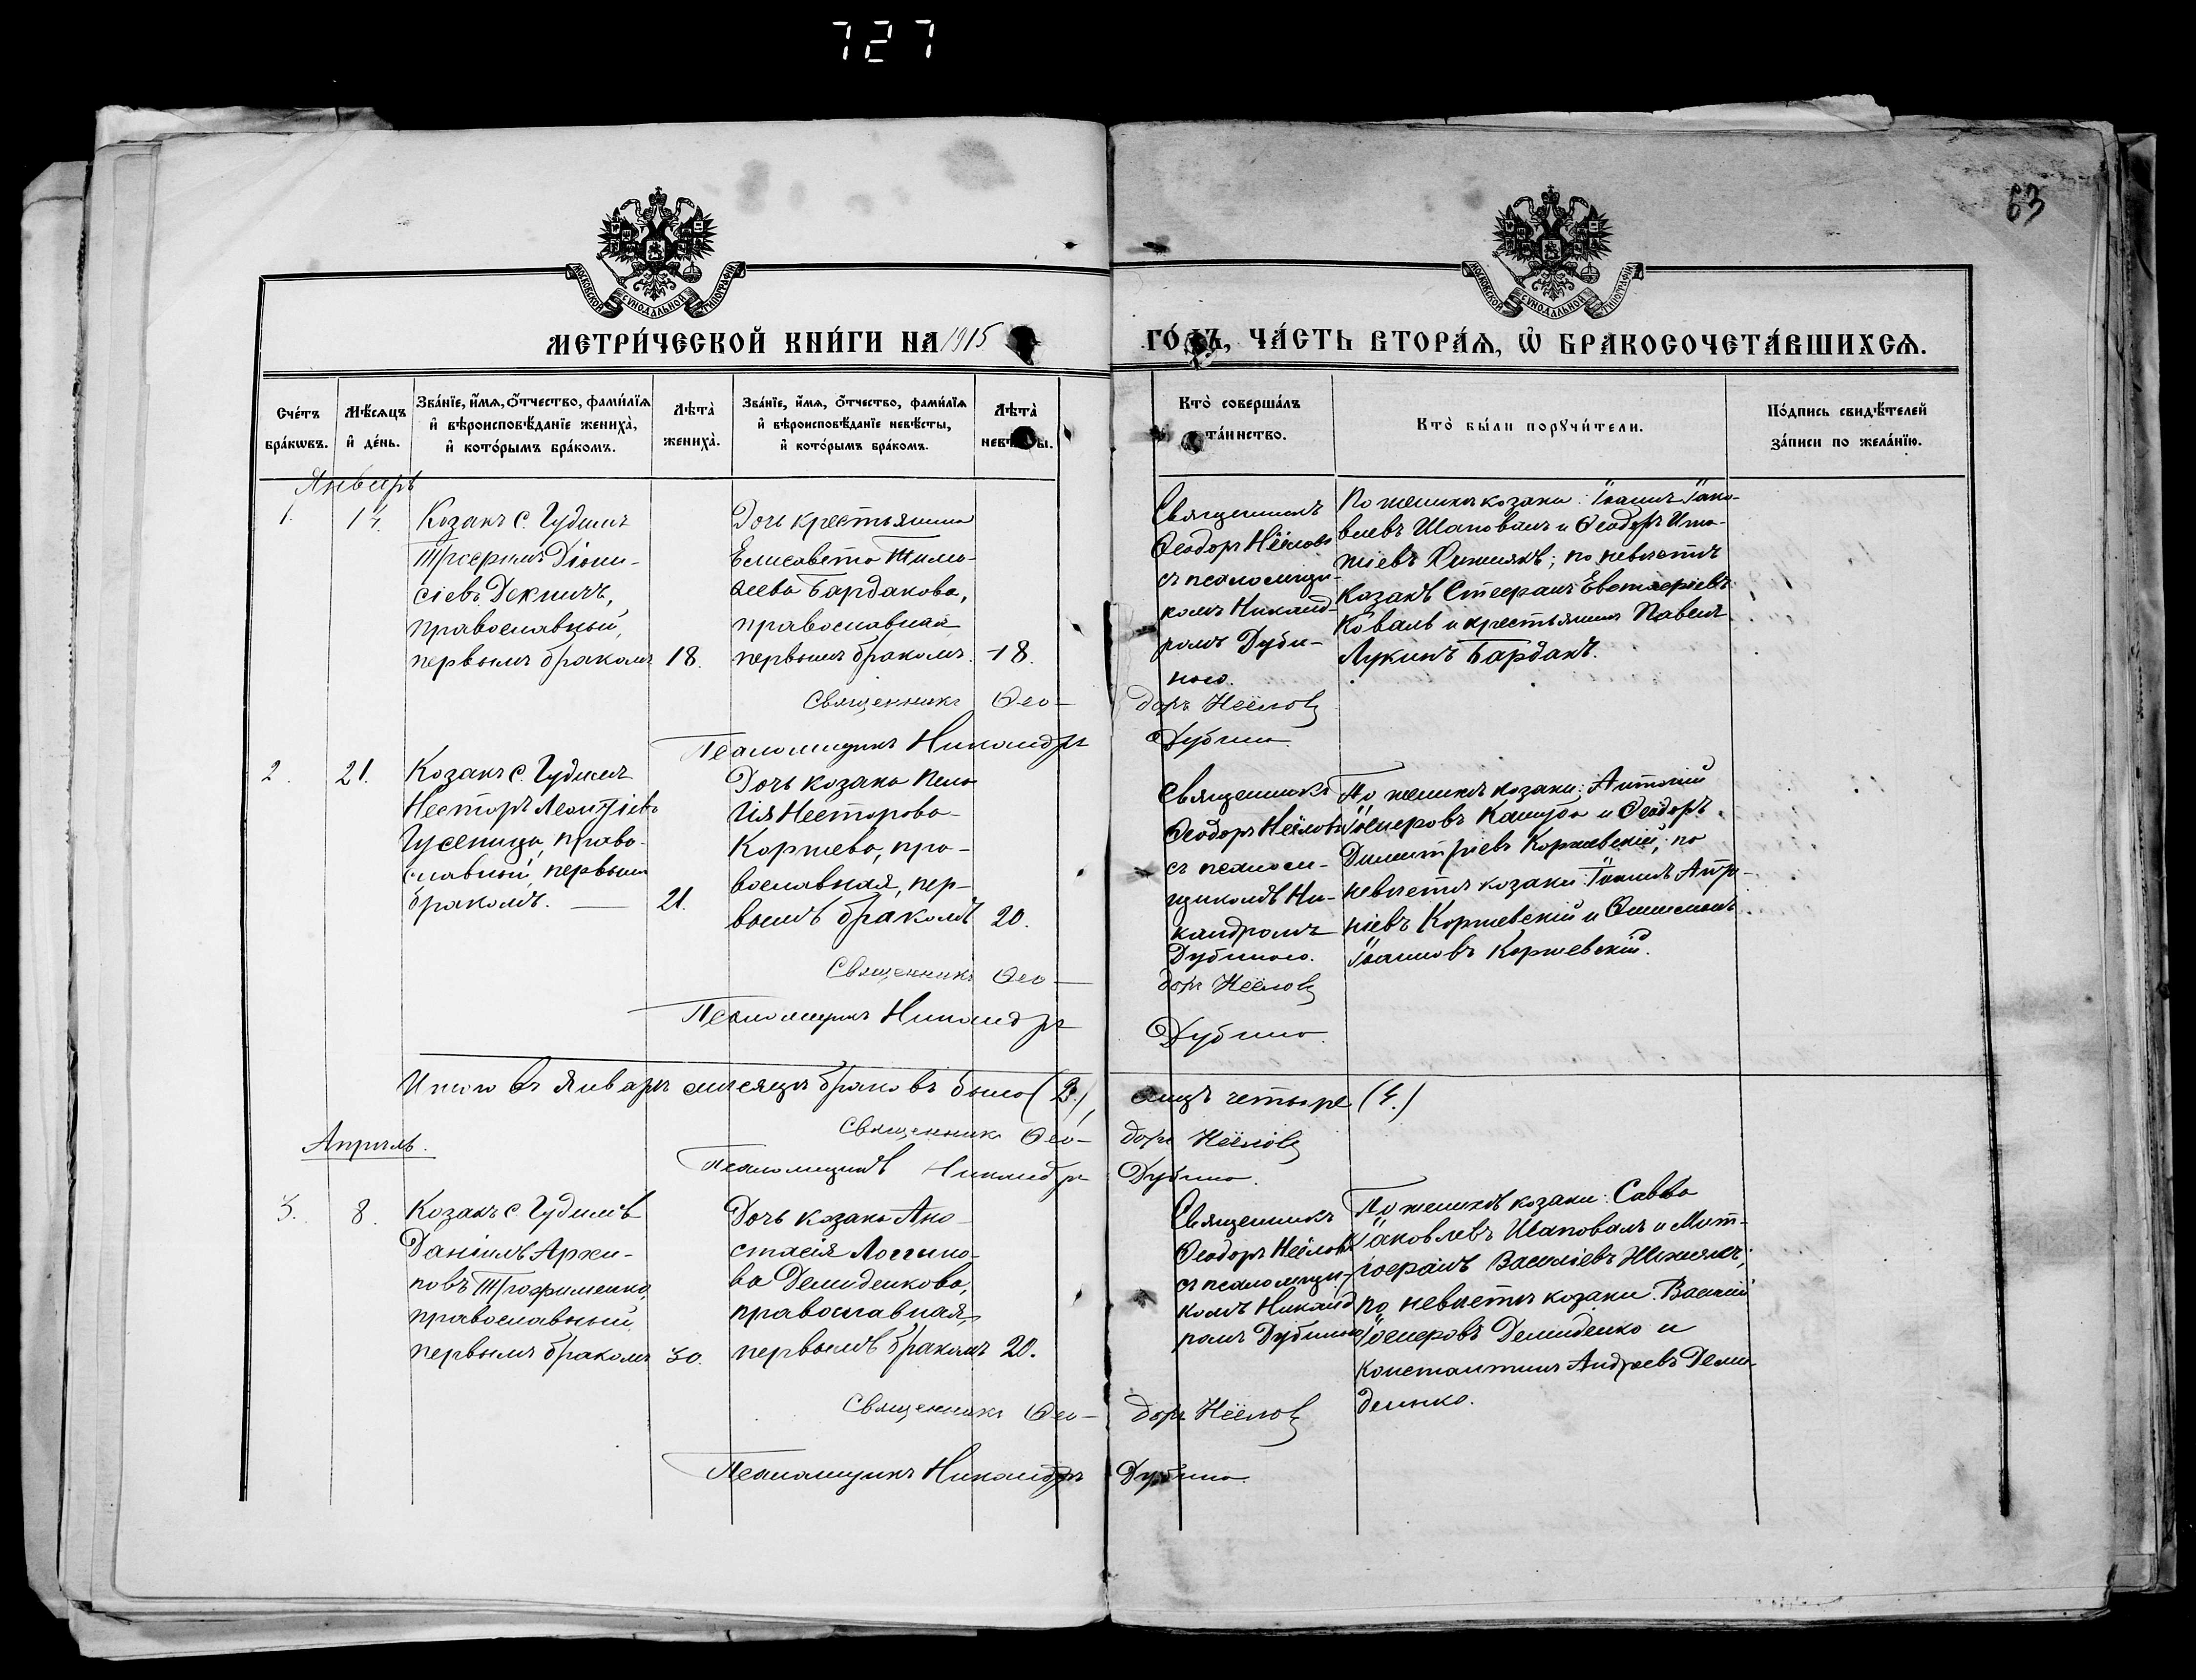 727
63
МОСКОВСКОЙ СУНОДАЛЬНОЙ ТИПОГРАФІИ
МОСКОВСКОЙ СУНОДАЛЬНОЙ ТИПОГРАФІИ
МЕТРИ́ЧЕСКОЙ КНИ́ГИ НА 1915
ГО́ДЪ, ЧА́СТЬ ВТОРА́Я, Ѡ БРАКОСОЧЕТА́ВШИХСЯ.
Сче́тъ
бра́кѡвъ.
Мѣ́сяцъ
и҆ де́нь.
Зва́нїе, и҆́мя, ѻ҆́тчество, фами́лїя
и҆ вѣроисповѣ́данїе жениха̀,
и҆ кото́рымъ бра́комъ.
Лѣта̀
жениха̀.
Зва́нїе, и҆́мя, ѻ҆́тчество, фами́лїя
и҆ вѣроисповѣ́данїе невѣ́сты,
и҆ кото́рымъ бра́комъ.
Лѣта̀
невѣ́сты.
Кто̀ соверша́лъ
та́инство.
Кто̀ бы́ли порꙋчи́тели.
По́дпись свидѣ́телей
за́писи по жела́нїю.
Январь
1.
14.
Козакъ с. Гудимъ
Трофимъ Діони-
сіевъ Декничъ,
православный,
первымъ бракомъ
18.
Дочь крестьянина
Елисавета Тимо-
ѳеева Бардакова,
православная
первымъ бракомъ.
18.
Священникъ
Ѳеодоръ Нѣёловъ
съ псаломщи-
комъ Никанд-
ромъ Дуби-
ною.
По женихѣ козаки: Іоаннъ Іако-
влевъ Шаповалъ и Ѳеодоръ
по невѣстѣ
Козакъ Стефанъ Евстафіевъ
Коваль и крестьянинъ Павелъ
Лукинъ Бардакъ.
Священникъ Ѳео-
доръ Нѣёловъ
Псаломщикъ Никандръ
Дубина.
2.
21.
Козакъ с. Гудимъ
Несторъ Леонтіевъ
Гусеница, право-
славный, первымъ
бракомъ.
21.
Дочь козака Пела-
гія Несторова
Коржева, пра-
вославная, пер-
вымъ бракомъ
20.
Священникъ
Ѳеодоръ Нѣёловъ
съ псаломщ-
щикомъ Ни-
кандромъ
Дубиною.
По женихѣ козаки: Антоній
Іосифовъ Кашуба и Ѳеодоръ
Димитріевъ Коржевскій; по
невѣстѣ козаки: Іоаннъ
Коржевскій и
Іоанновъ Коржевскій.
Священникъ Ѳео-
доръ Нѣёловъ
Псаломщикъ Никандръ
Дубина.
Итого въ январѣ мѣсяцѣ браковъ было (2.),
лицъ четыре (4.)
Священникъ Ѳео-
доръ Нѣёловъ
Псаломщикъ Никандръ
Дубина.
Апрѣль.
3.
8.
Козакъ с. Гудимъ
Даніилъ Архи-
повъ Трофименко,
православный,
первымъ бракомъ
30.
Дочь козака Ана-
стасія Логгино-
ва Демиденкова,
православная,
первымъ бракомъ
20.
Священникъ
Ѳеодоръ Нѣёловъ
съ псаломщи-
комъ Никанд-
ромъ Дубиною
По женихѣ козаки: Савва
Іаковлевъ Шаповалъ и Мит-
рофанъ Василіевъ Нижникъ;
по невѣстѣ козаки: Василій
Іосифовъ Демиденко и
Константинъ Андреевъ Деми-
денко.
Священникъ Ѳео-
доръ Нѣёловъ
Псаломщикъ Никандръ
Дубина.